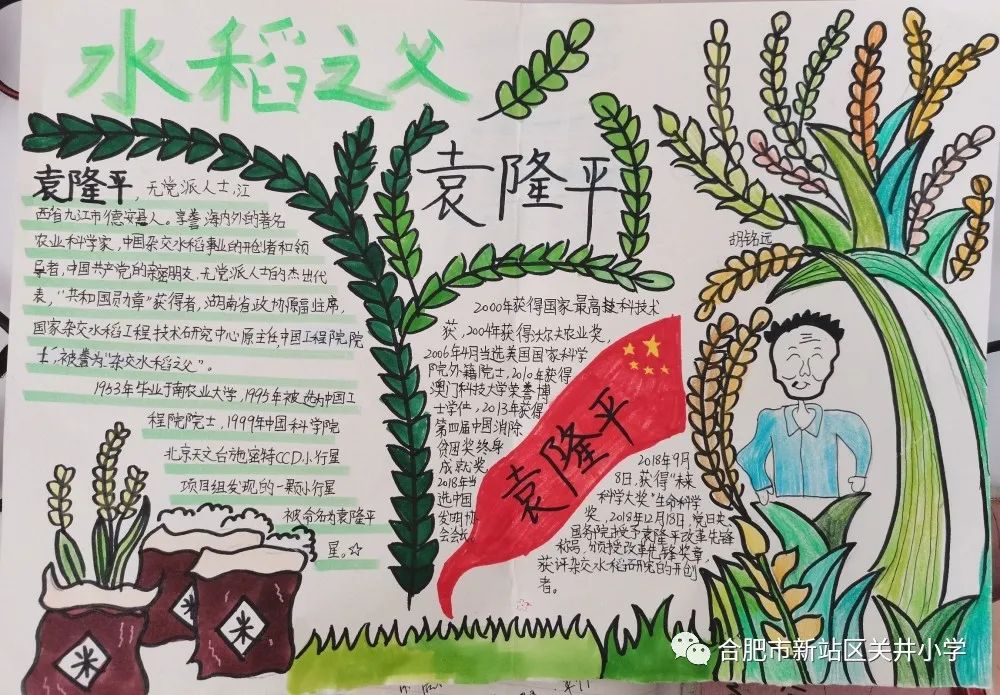 水稻之父
袁隆平，无党派人士，江
西省九江市德安县人。享誉海内外的著名
农业科学家，中国杂交水稻事业的开创者和领
导者，中国共产党的亲密朋友，无党派人士的杰出代
表，“共和国勋章”获得者，湖南省政协原副主席，
国家杂交水稻工程技术研究中心原主任，中国工程院院
士，被誉为“杂交水稻之父”。
1953年毕业于南农业大学，1995年被选为中国工
程院院士，1999年中国科学院
北京天文台施密特CCD小行星
项目组发现的一颗小行星
被命名为袁隆平
星。☆
袁隆平
2000年获得国家最高技科技术
获，2004年获得沃尔夫农业奖，
2006年4月当选美国国家科学
院外籍院士，2010年获得
澳门科技大学荣誉博
士学位，2013年获得
第四届中国消除
贫困奖终身
成就奖。
2018年当
选中国
发明协
会会长。
袁隆平
2018年9月
8日，获得“未来
科学大奖”生命科学
奖，2018年12月18日，党中央、
国务院授予袁隆平改革先锋
称号，颁授改革先锋奖章，
获评杂交水稻研究的开创
者。
胡铭远
米
米
米
合肥市新站区关井小学